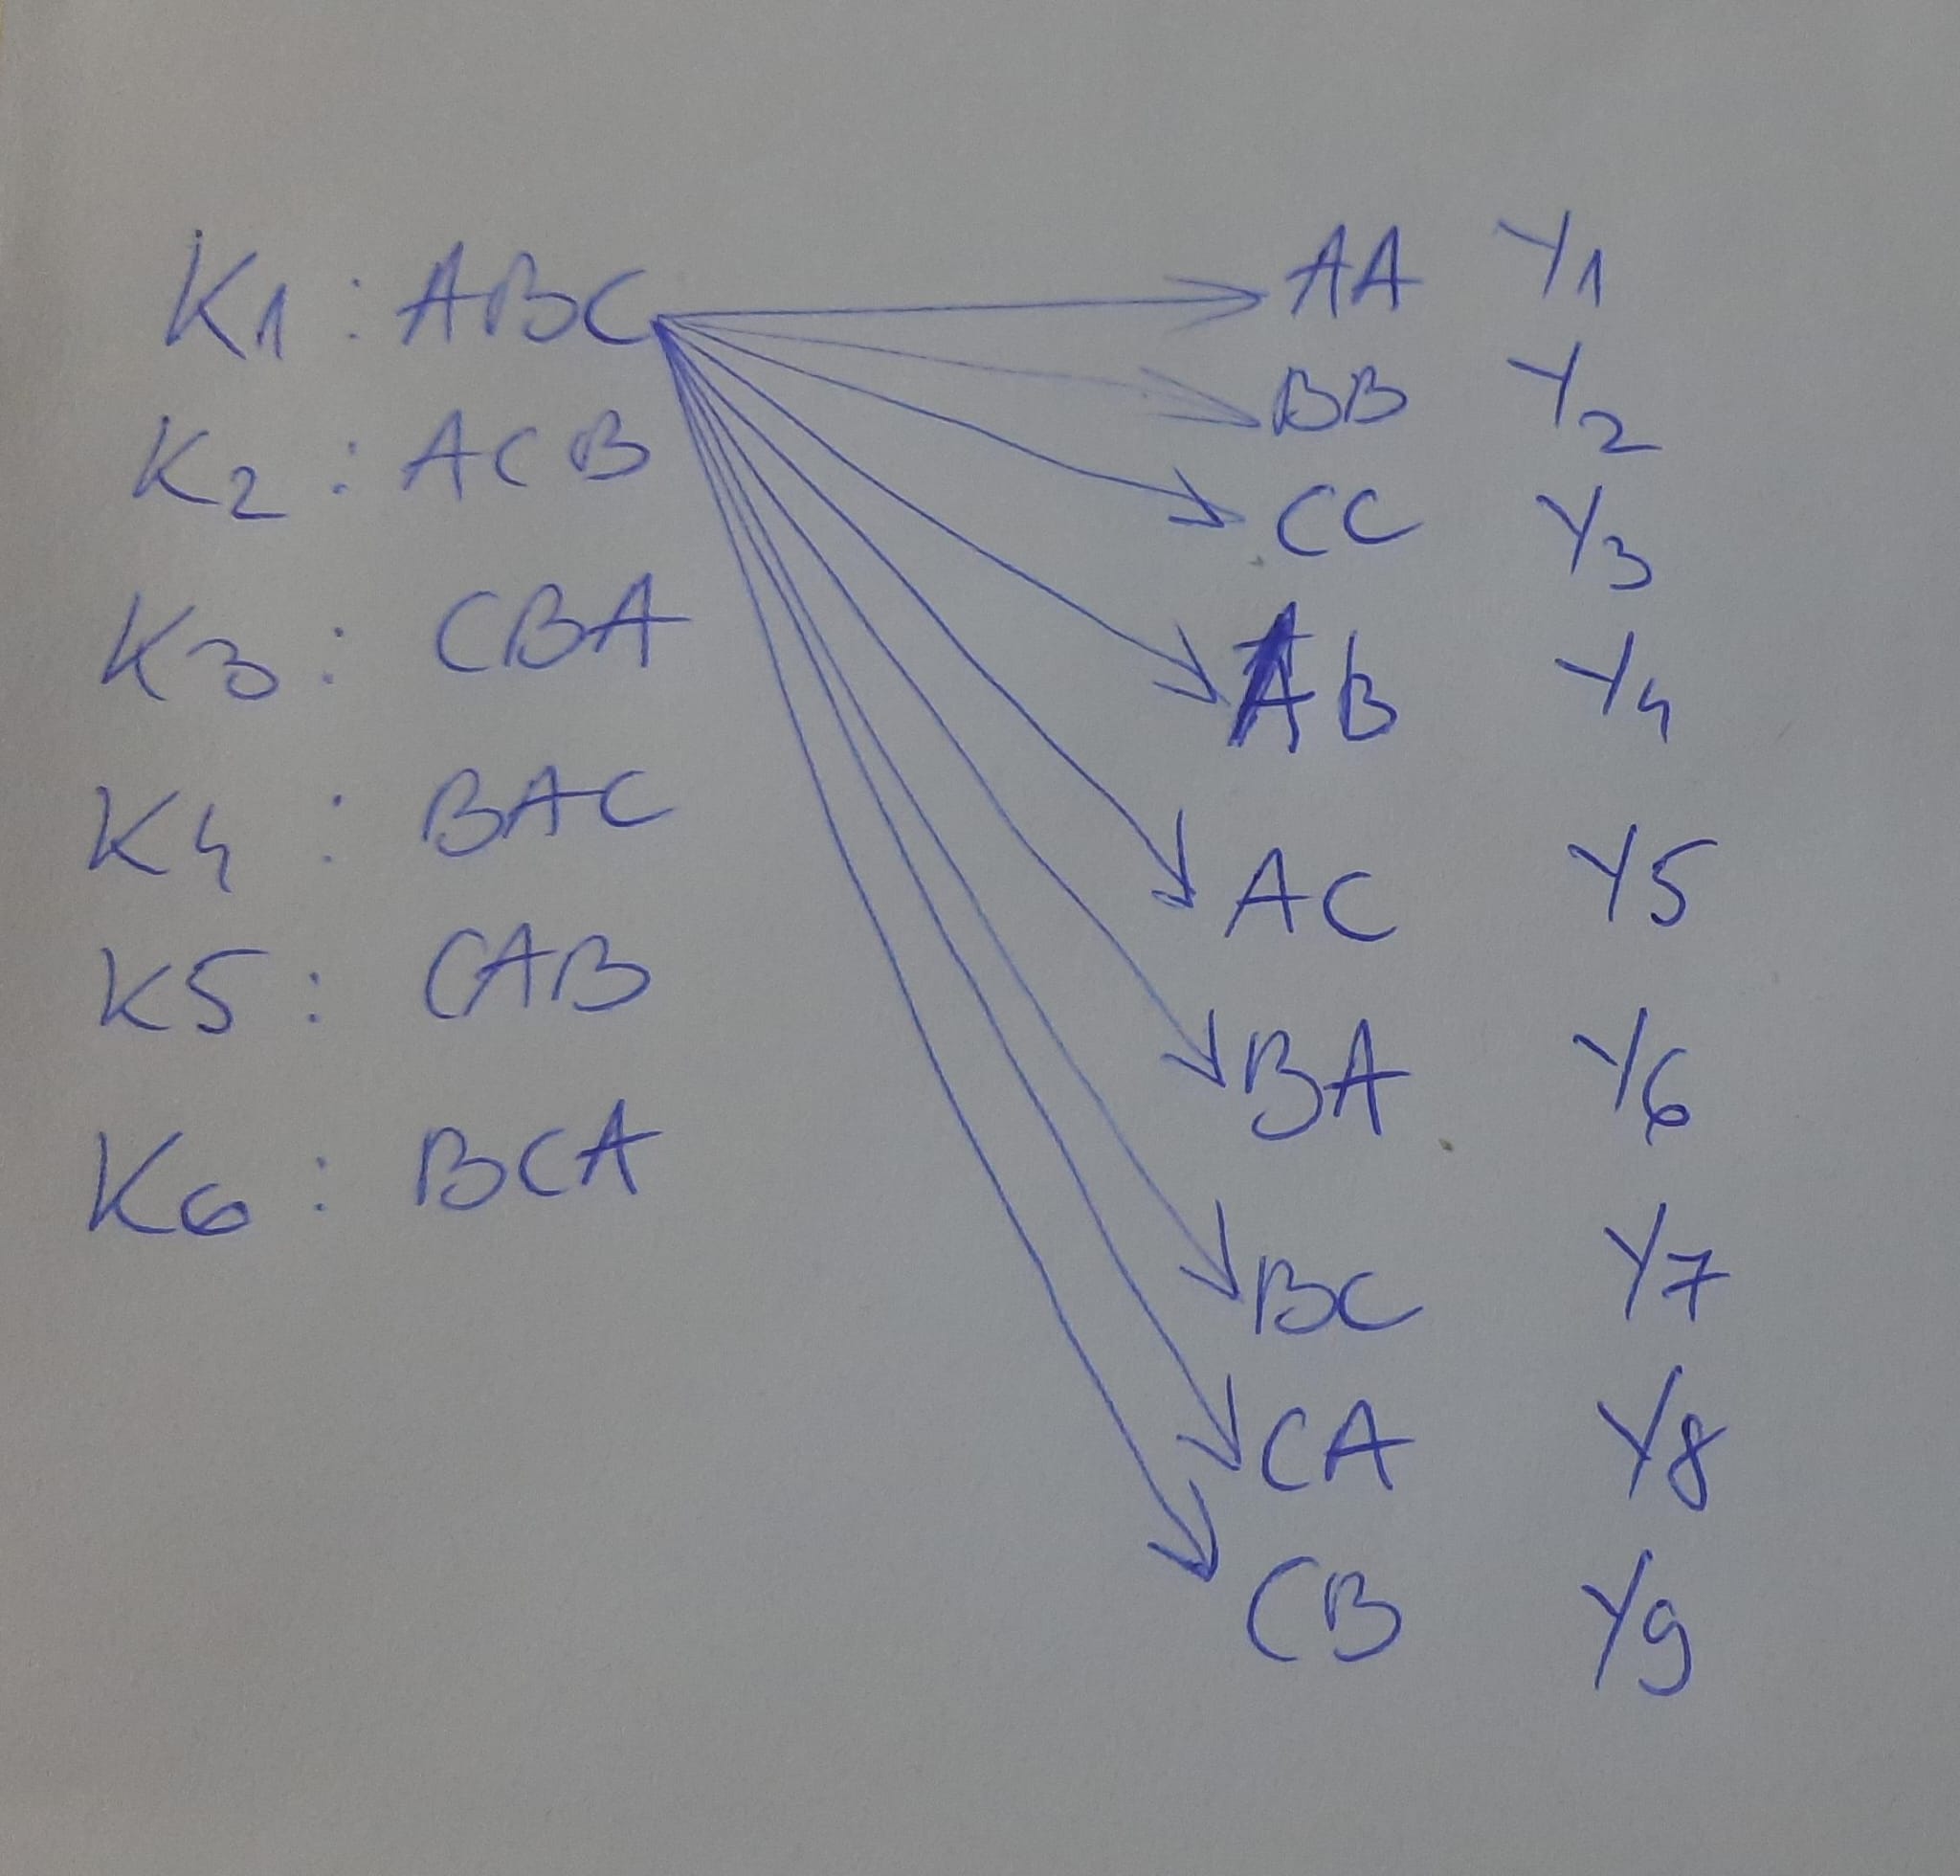 K1 : ABC
K2 : ACB
K3 : CBA
K4 : BAC
K5 : CAB
K6 : BCA
AA Y1
BB Y2
CC Y3
AB Y4
AC Y5
BA Y6
BC Y7
CA Y8
CB Y9